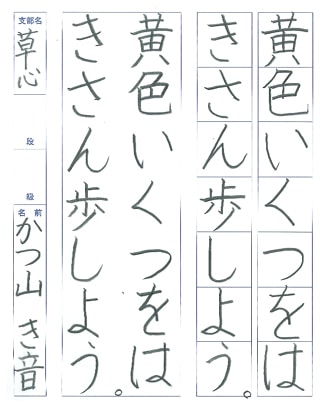 黄色いくつをは
きさん歩しよう。
黄色いくつをは
きさん歩しよう。
支部名
草心
段
級
名前
かつ山 き音